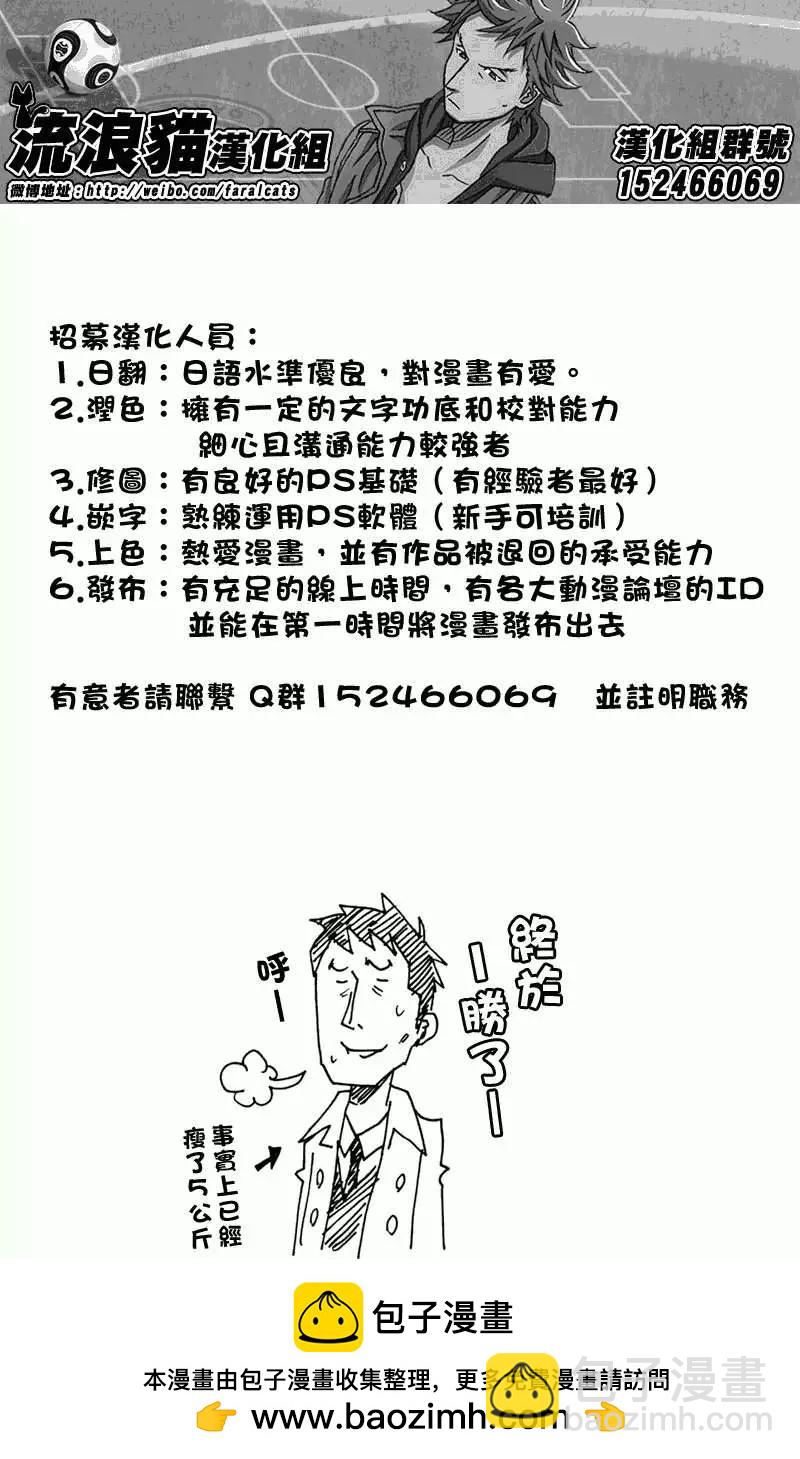 流浪貓漢化組
微博地址：http://weibo.com/faralcats
漢化組群號
152466069
招募漢化人員：
1.日翻：日語水準優良，對漫畫有愛。
2.潤色：擁有一定的文字功底和校對能力
細心且溝通能力較強者
3.修圖：有良好的PS基礎（有經驗者最好）
4.嵌字：熟練運用PS軟體（新手可培訓）
5.上色：熱愛漫畫，並有作品被退回的承受能力
6.發布：有充足的線上時間，有各大動漫論壇的ID
並能在第一時間將漫畫發布出去
有意者請聯繫 Q群152466069 並註明職務
終於
ー勝了ー
呼ー
事實上已經
瘦了5公斤
包子漫畫
本漫畫由包子漫畫收集整理，更多免費漫畫請訪問
👉 www.baozimh.com 👈
包子漫畫
baozimh.com